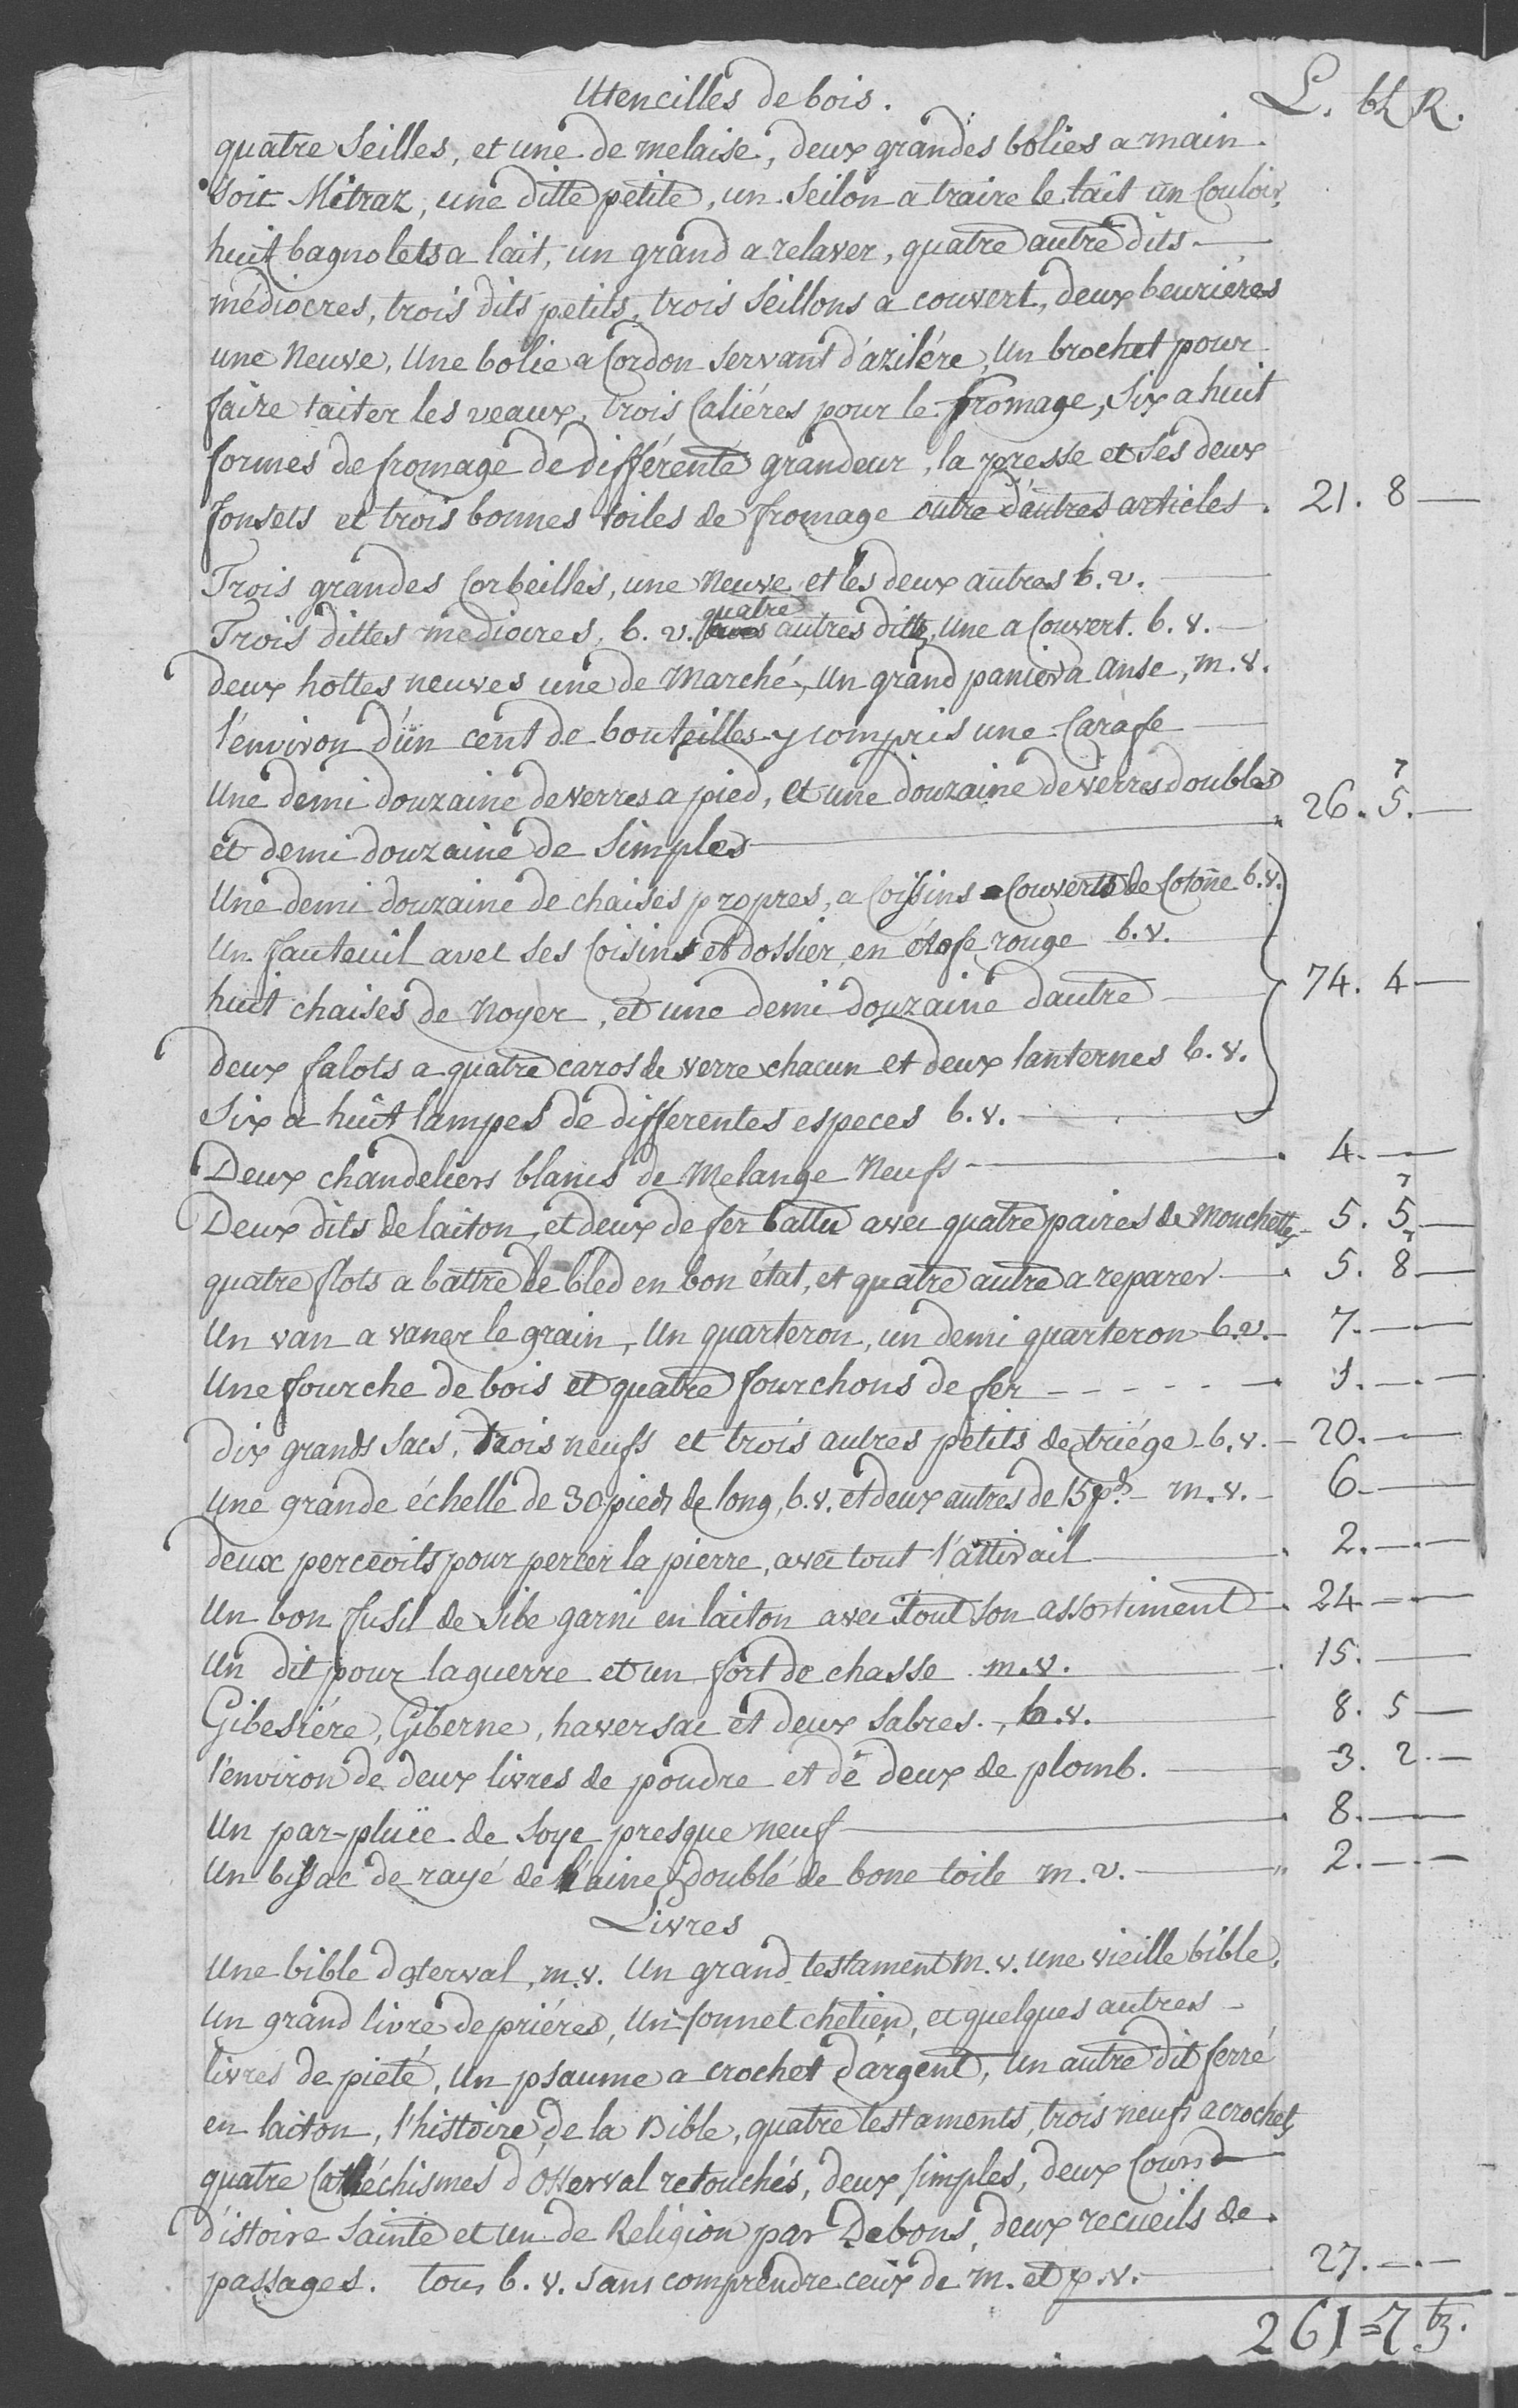 Utencilles de bois. L. bz R.
quatre Seilles, et une de melaise, deux grandes bolies a main
soit Mitraz, une ditte petite, un Seilon a traire le lait un Couloir,
huit bagnolets a lait, un grand a relaver, quatre autre dits
médiocres, trois dits petits, trois Seillons a couvert, deux beuriéres
une Neuve, Une bolie a Cordon servant d'azilére, Un brochet pour
faire taiter les veaux, trois Caliéres pour le fromage, Six a huit
formes de fromage de différente grandeur, la presse et ses deux
fonsets et trois bonnes toiles de fromage outre d'autres articles. 21. 8 —
Trois grandes Corbeilles, une Neuve et les deux autres b. v.
Trois dittes mediocres, b. v. quatre autres dittes, une a Couvert. b. v.
deux hottes neuves une de Marché, Un grand panier a anse, m. v.
l'environ d'un cent de bouteilles y compris une Carafe
Une demi douzaine de verres a pied, et une douzaine de verres doubles
et demi douzaine de Simples 26. 5. — 7
Une demi douzaine de chaises propres, a Coissins Couverts de Cotone b. v.
Un fauteuil avec ses Coisins et dossier, en étofe rouge b. v.
huit chaises de Noyer, et une demi douzaine dautre 74. 4 —
deux falots a quatre caros de verre chacun et deux lanternes b. v.
Six a huit lampes de differentes especes b. v.
Deux chandeliers blancs de Melange Neufs 4. —
Deux dits de laiton, et deux de fer battu avec quatre paires de Mouchettes 5. 5 — 7
quatre flots a battre le bled en bon état, et quatre autre a reparer 5. 8 —
Un van a vaner le grain, Un quarteron, un demi quarteron b. v. 7. —
Une fourche de bois et quatre fourchons de fer 3. —
dix grands sacs, trois neufs et trois autres petits de triége b. v. 20. —
Une grande échelle de 30 pieds de long, b. v. et deux autres de 15 pds m. v. 6 —
deux percevoits pour percer la pierre, avec tout l'attirail 2. —
Un bon fusil de Sibe garni en laiton avec tout son assortiment 24 —
Un dit pour la guerre et un fort de chasse m. v. 15. —
Gibesiére, Giberne, haversac et deux sabres, b. v. 8. 5 —
l'environ de deux livres de poudre et de deux de plomb. 3. 2. —
Un par-pluïe de soye presque neuf 8. —
Un bissac de rayé de laine doublé de bone toile m. v. 2. —
Livres
Une bible dosterval, m. v. Un grand testament m. v. une vieille bible,
Un grand livre de priéres, Un sonnet chetien, et quelques autres
livres de pieté, Un psaume a crochet d'argent, Un autre dit ferré
en laiton, l'histoire de la Bible, quatre testaments, trois neufs a crochets
quatre Cathéchismes d'Osterval retouchés, deux simples, deux Cours
d'istoire Sainte et un de Religion par Debons, deux recueils de
passages. tous b. v. sans comprendre ceux de m. et p. v. 27. —
261=7 bz.